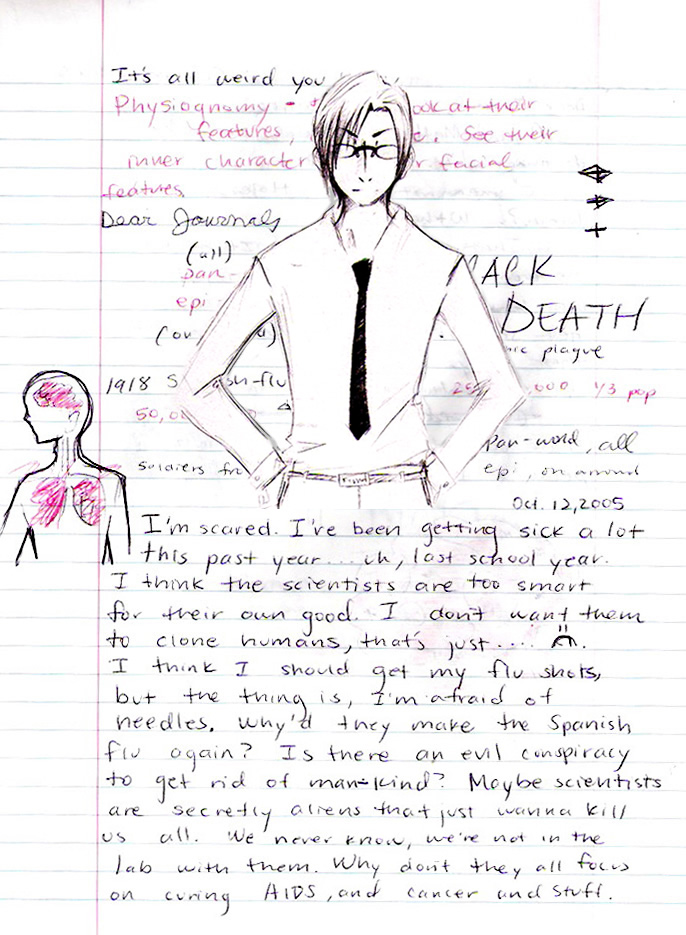 It's all weird you
Physiognomy - look at their
features, . See their
inner character facial
features
Dear Journals
(all)
pan-
epi
BLACK
DEATH
plague
1918 S ish-flu
,000 1/3 pop
50,0
pan-world, all
soldiers
epi, on around
Oct. 12, 2005
I'm scared. I've been getting sick a lot
this past year... uh, last school year.
I think the scientists are too smart
for their own good. I don't want them
to clone humans, that's just....
I think I should get my flu shots,
but the thing is, I'm afraid of
needles. Why'd they make the Spanish
flu again? Is there an evil conspiracy
to get rid of man-kind? Maybe scientists
are secretly aliens that just wanna kill
us all. We never know, we're not in the
lab with them. Why don't they all focus
on curing AIDS, and cancer and stuff.